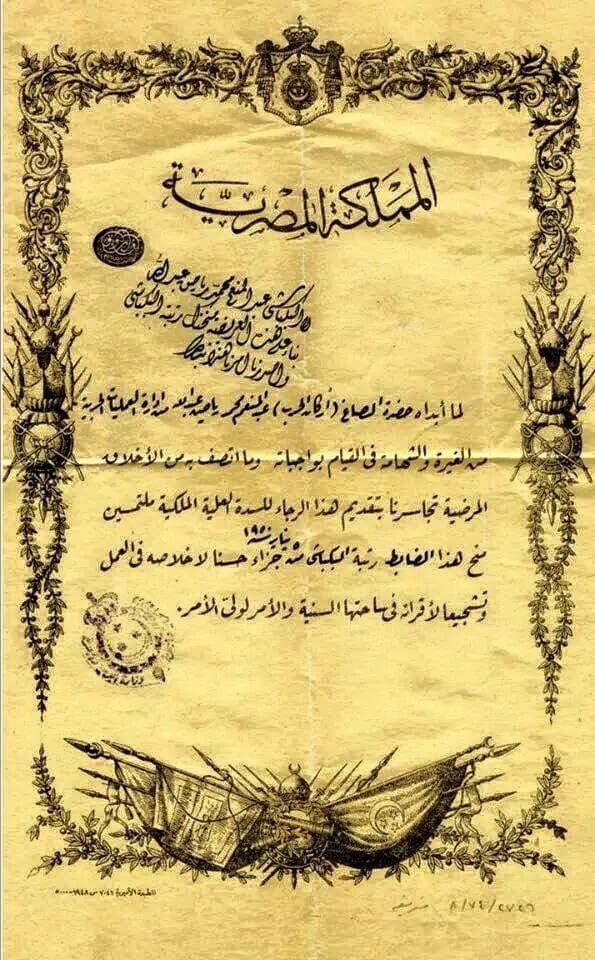 المملكة المصرية
فاروق
البكباشى عبد المنعم محمد رياض عبد الله
رتبة البكباشى
لما أبداه حضرة الصاغ (أركان الحرب) عبد المنعم محمد رياض عبد الله من إدارة العمليات الحربية
من الغيرة والشهامة فى القيام بواجباته وما اتصف به من الأخلاق
المرضية تجاسرنا بتقديم هذا الرجاء للسدة العلية الملكية ملتمسين
منح هذا الضابط رتبة البكباشى من ١٩٥٠ جزاء حسنا لاخلاصه فى العمل
وتشجيعا لأقرانه فى ساحتها السنية والأمر لولى الأمر.
المطبعة الأميرية ٧٠٤٦ س ١٩٤٨-٥٠٠٠
٨/٧٤/٢٧٢٦